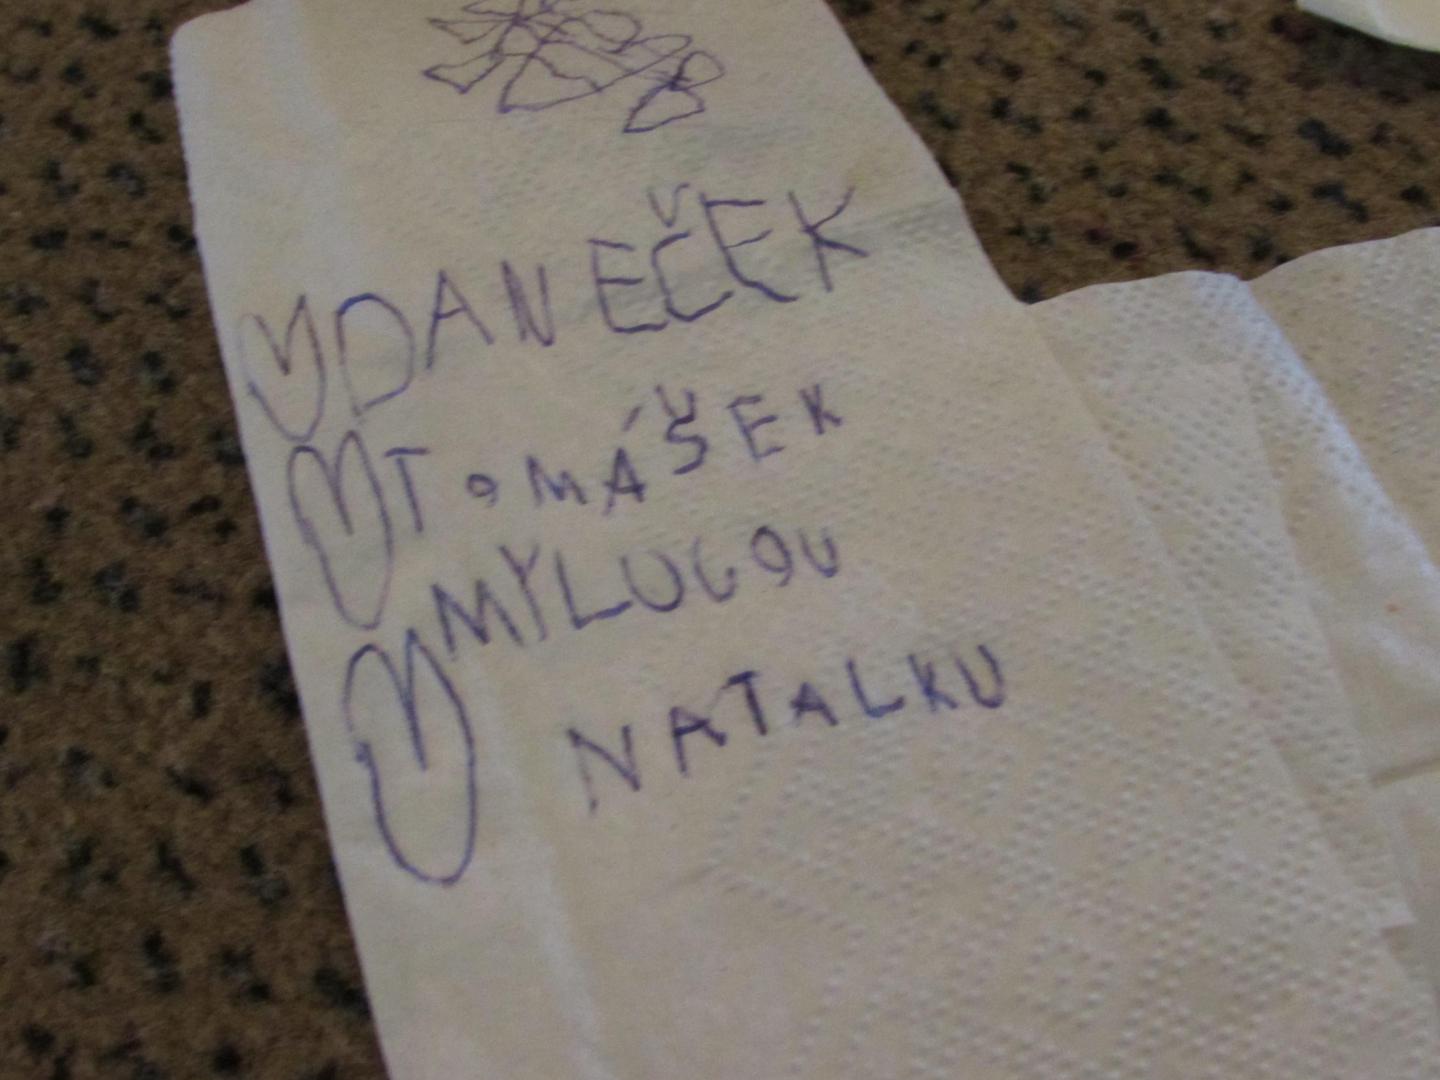 DANEČEK
TOMÁŠEK
MYLUJOU
NATALKU